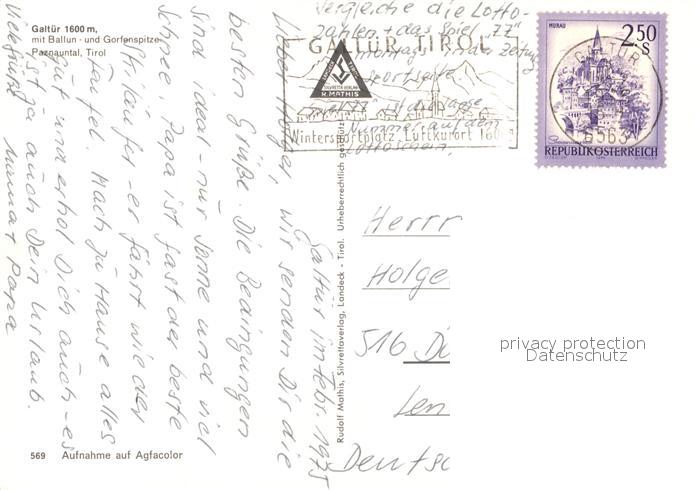 Galtür 1600 m,
mit Ballun- und Gorfenspitze
Paznauntal, Tirol
Vergleiche die Lotto-
zahlen + das Spiel „77"
Sportseite
Lottoschein.
GALTÜR TIROL
SILVRETTA VERLAG
R. MATHIS
Wintersportplatz, Luftkurort 1600 m
GALTÜR
6563
MURAU
2.50
S
REPUBLIK ÖSTERREICH
Galtür im Febr. 1975
Lieber Holger, wir senden Dir die
besten Grüße. Die Bedingungen
sind ideal - nur Sonne und viel
Schnee. Papa ist fast der beste
Skiläufer - er fährt wie der
Teufel. Mach zu Hause alles
gut und erhol Dich auch - es
ist ja auch Dein Urlaub.
Papa
Rudolf Mathis, Silvrettaverlag, Landeck - Tirol. Urheberrechtlich geschützt
Herrn
Holge
516 Dü
Len
Deutsc
privacy protection
Datenschutz
569 Aufnahme auf Agfacolor